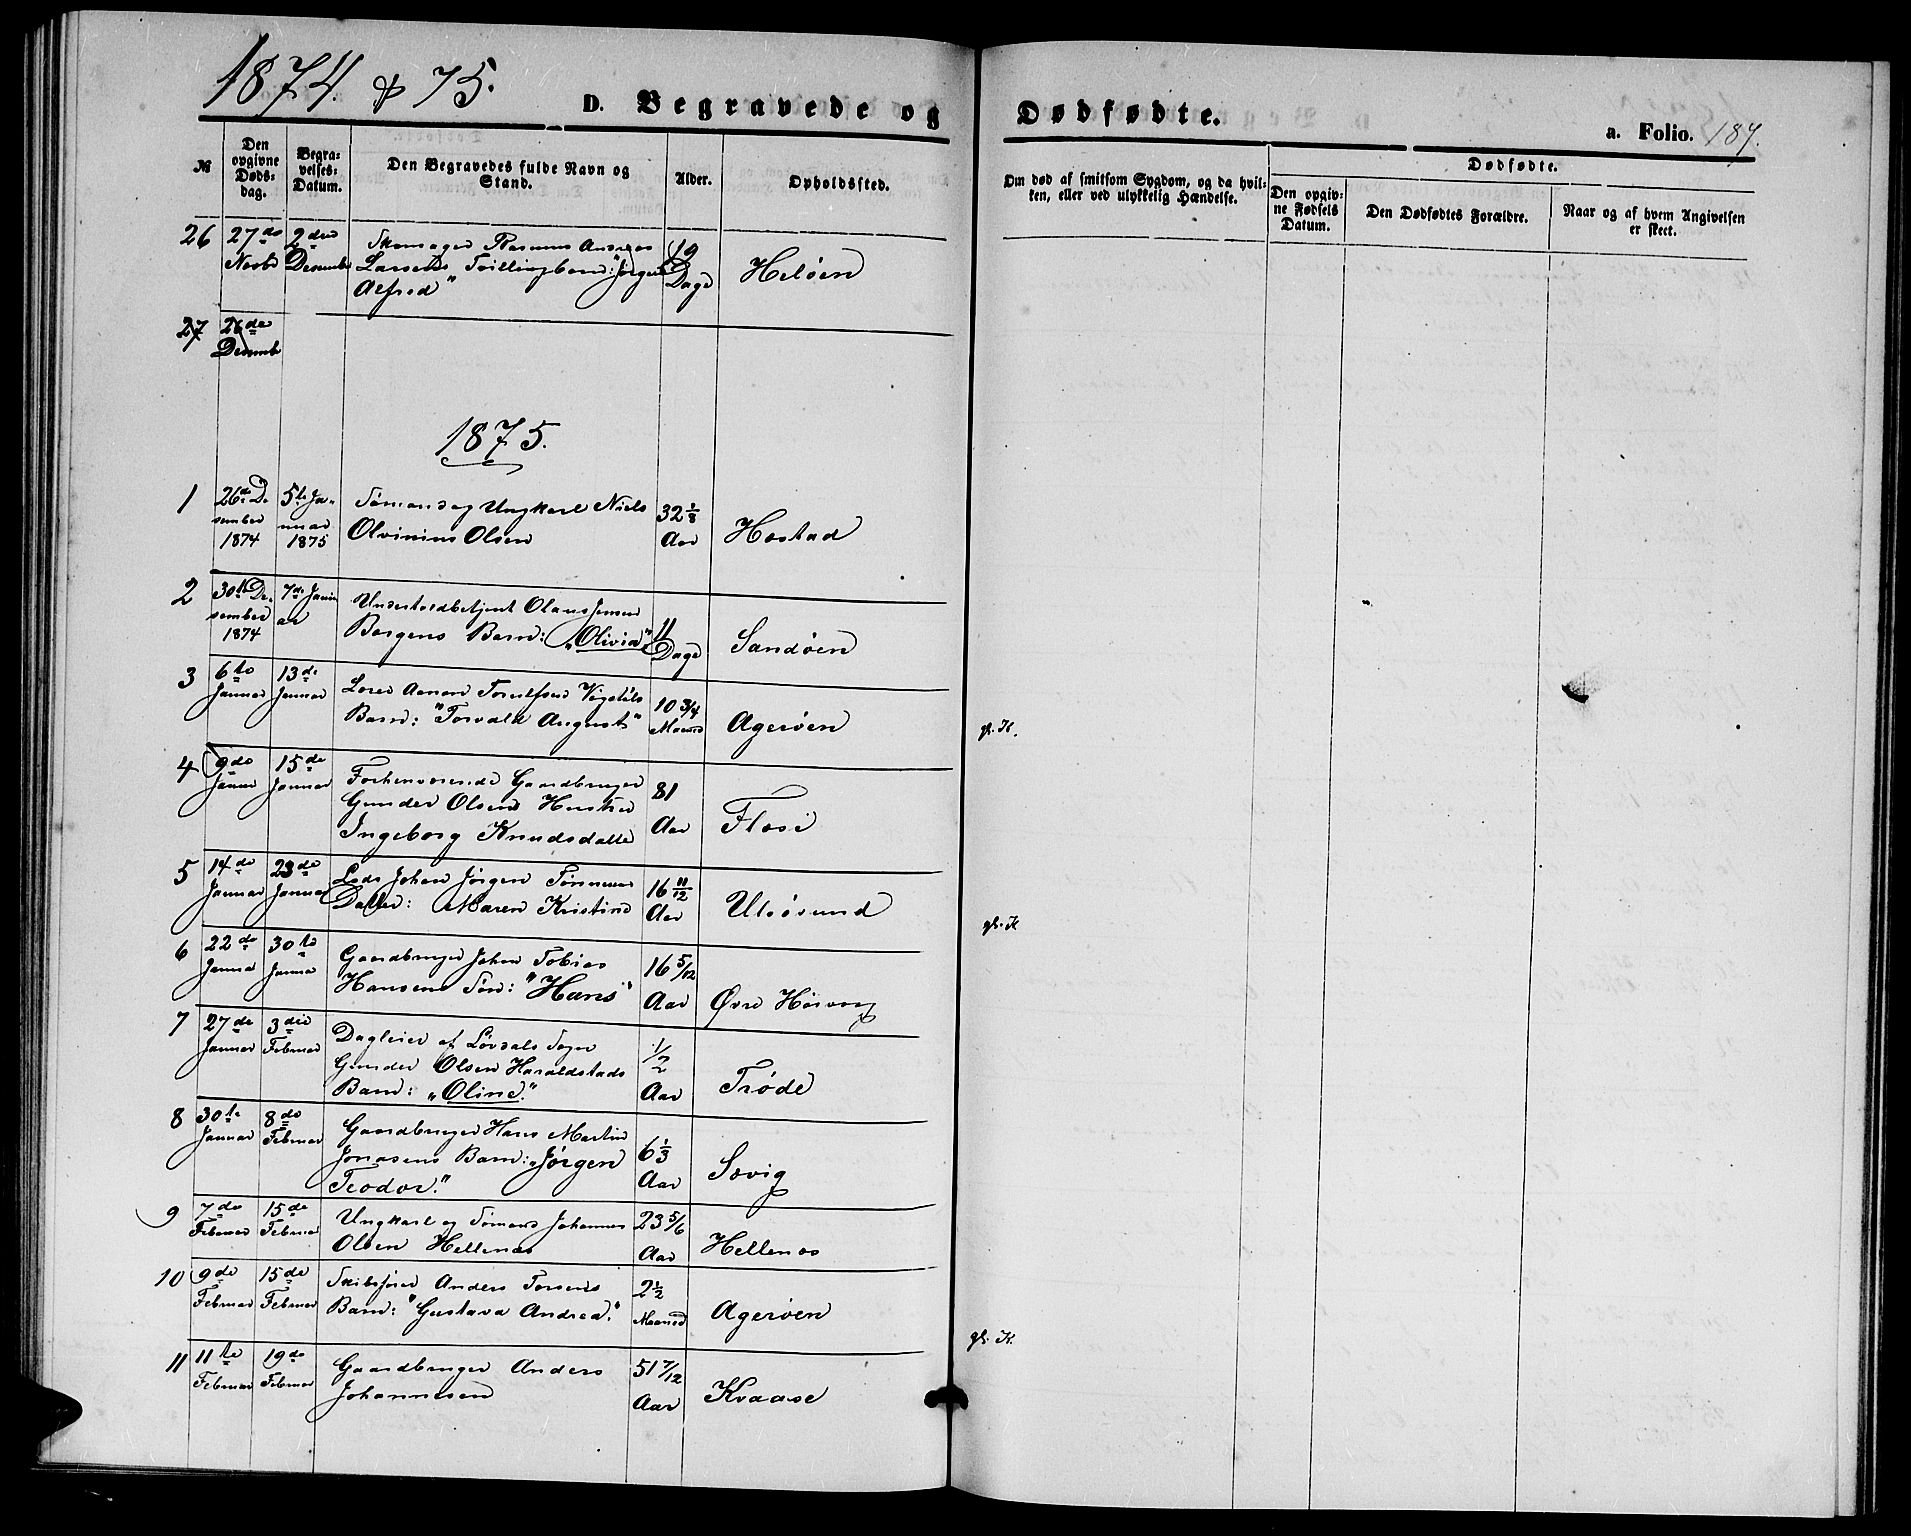 1874. & 75.
D. Begravede og Dødfødte.
a. Folio. 187.
№
Den opgivne Døds-dag.
Begra-velses-Datum.
Den Begravedes fulde Navn og Stand.
Alder.
Opholdssted.
Om død af smitsom Sygdom, og da hvil-ken, eller ved ulykkelig Hændelse.
Dødfødte.
Den opgiv-ne Fødsels Datum.
Den Dødfødtes Forældre.
Naar og af hvem Angivelsen er skeet.
26 27de 2den Skomager Rasmus Andreas 19
Novbr December Larsens Tvillingbarn: "Jørgen Dage Heløen
Alfred"
27 26de
Decemb
1875.
1 26de De 5te Ja- Sømand og Ungkarl Niels 32 1/8
sember nuar Olvinius Olsen Aar Hostad
1874 1875
2 30te De- 7de Janu Undertoldbetjent Olaus Jensen 11
sember ar Borgens Barn: "Olivia" Dage Sandøen
1874
3 6te 13de Lods Aanon Torulfsen 10 3/4
Januar Januar Barn: "Torvald August" Maaned Agerøen gl. K.
4 9de 15de Forhenværende Gaardbruger 81
Januar Januar Gunder Olsens Hustru Aar
Ingeborg Knudsdatte
5 14de 23de Lods Johan Jørgen Tønnesens 16 11/12
Januar Januar Datter: Maren Kristine Aar Ulvøsund gl. K
6 22de 30te Gaardbruger Johan Tobias 16 5/12
Januar Januar Hansens Søn: "Hans" Aar Øvre
7 27de 3die Dagleier af Løvdals Sogn 1/2
Januar Februar Gunder Olsen Haraldstads Aar
Barn: "Oline." Trøde
8 30te 8de Gaardbruger Hans Martin 6 1/3
Januar Februar Jonasens Barn: "Jørgen Aar Sævig
Teodor."
9 7de 15de Ungkarl og Sømand Johannes 23 5/6
Februar Februar Olsen Hellenæs Aar Hellenæs
10 9de 15de Skibsfører Anders Torsens 2 1/2
Februar Februar Barn: "Gustava Andrea." Maaned Agerøen gl. K.
11 11te 19de Gaardbruger Anders 51 7/12
Februar Februar Johannesen Aar Kvaase